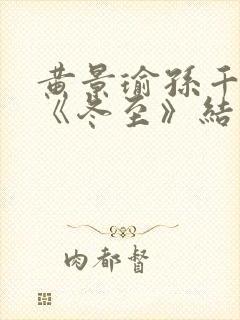 黄景瑜孙千
《冬至》結
肉都督